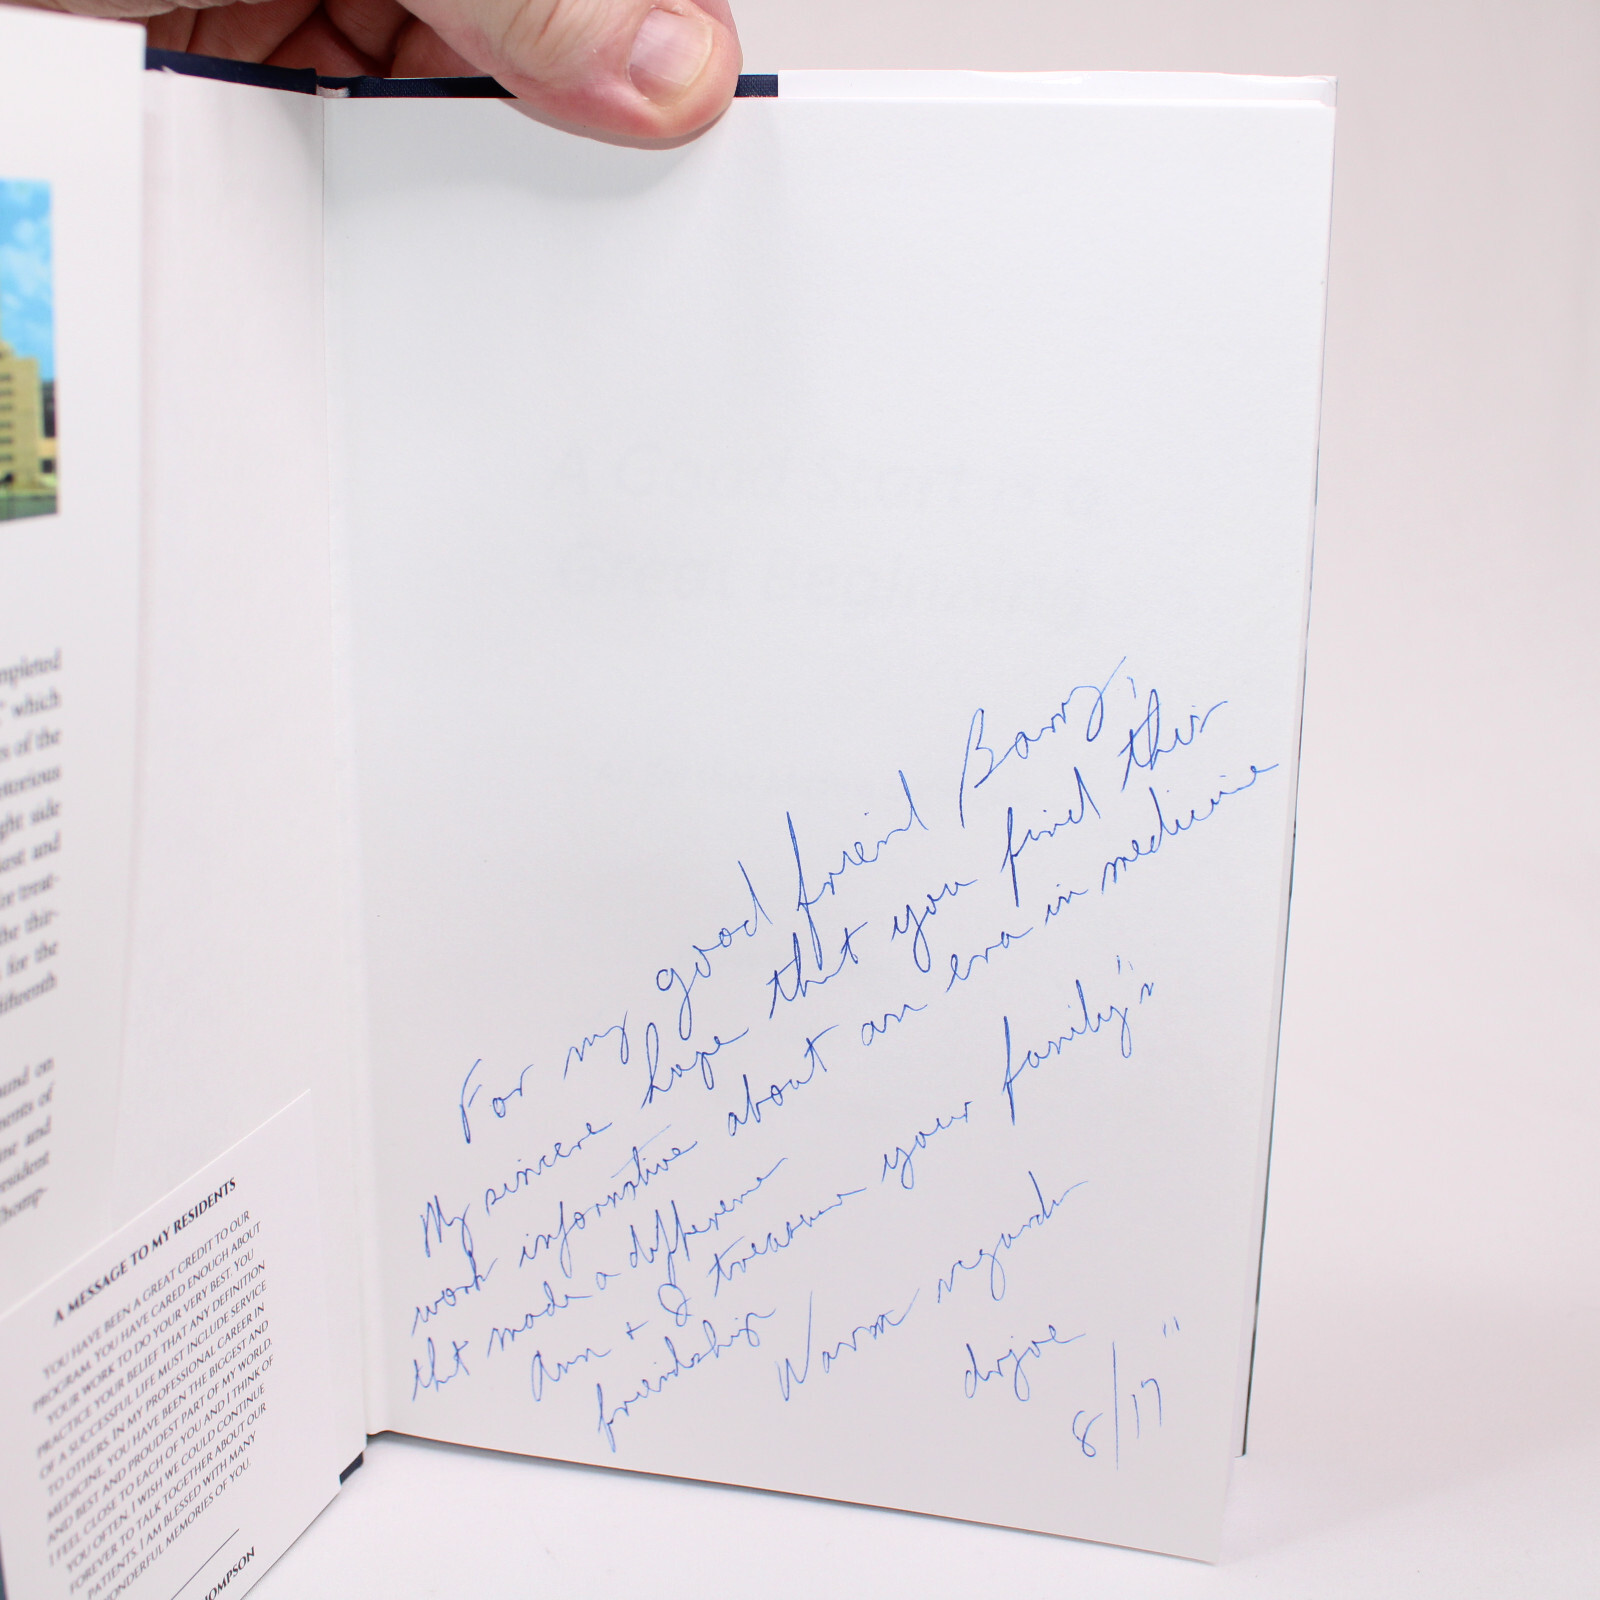 mpleted
" which
s of the
torious
ght side
iest and
or treat-
he thir-
for the
fifteenth
und on
ments of
ne and
resident
homp-
A MESSAGE TO MY RESIDENTS
YOU HAVE BEEN A GREAT CREDIT TO OUR
PROGRAM. YOU HAVE CARED ENOUGH ABOUT
YOUR WORK TO DO YOUR VERY BEST. YOU
PRACTICE YOUR BELIEF THAT ANY DEFINITION
OF A SUCCESSFUL LIFE MUST INCLUDE SERVICE
TO OTHERS. IN MY PROFESSIONAL CAREER IN
MEDICINE, YOU HAVE BEEN THE BIGGEST AND
AND BEST AND PROUDEST PART OF MY WORLD.
I FEEL CLOSE TO EACH OF YOU AND I THINK OF
YOU OFTEN. I WISH WE COULD CONTINUE
FOREVER TO TALK TOGETHER ABOUT OUR
PATIENTS. I AM BLESSED WITH MANY
WONDERFUL MEMORIES OF YOU.
HOMPSON
A Good Start is a
Great Beginning
For my good friend Barry,
My sincere hope that you find this
work informative about an era in medicine
that made a difference
Ann + I treasure your family's
friendship
Warm regards
drjoe
8/17